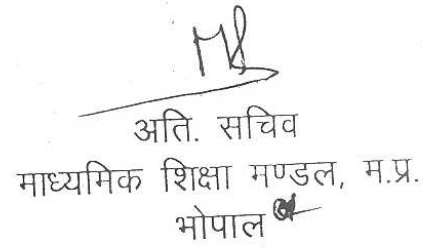 अति. सचिव
माध्यमिक शिक्षा मण्डल, म.प्र.
भोपाल